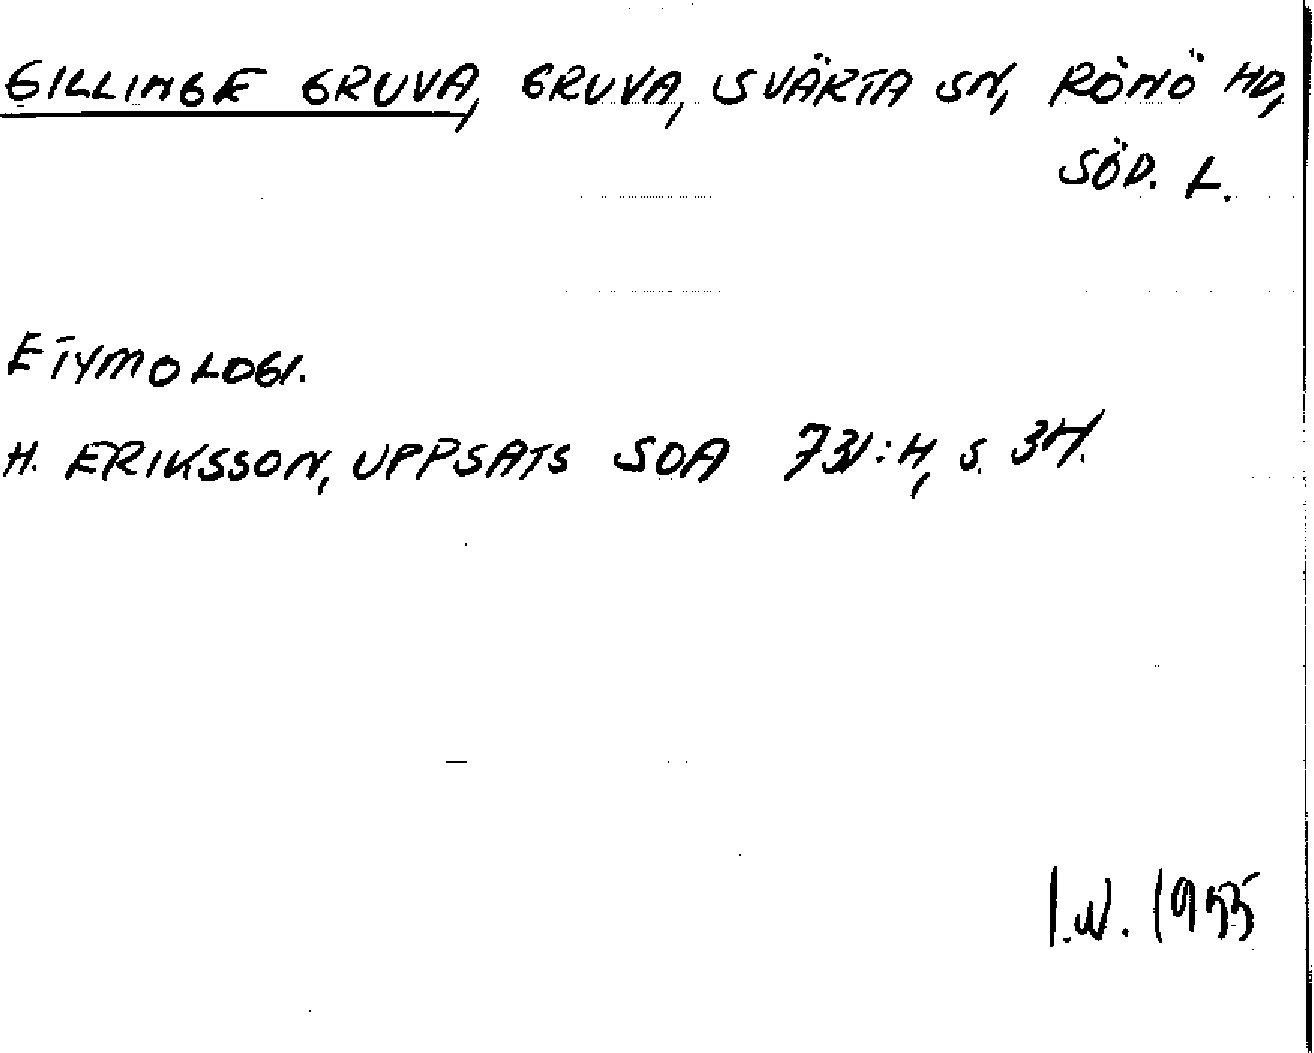 GILLINGE GRUVA, GRUVA, SVÄRTA SN, RÖNÖ HD,
SÖD. L.
ETYMOLOGI.
H. ERIKSSON, UPPSATS SOA 731:4, S. 34.
I.W. 1955